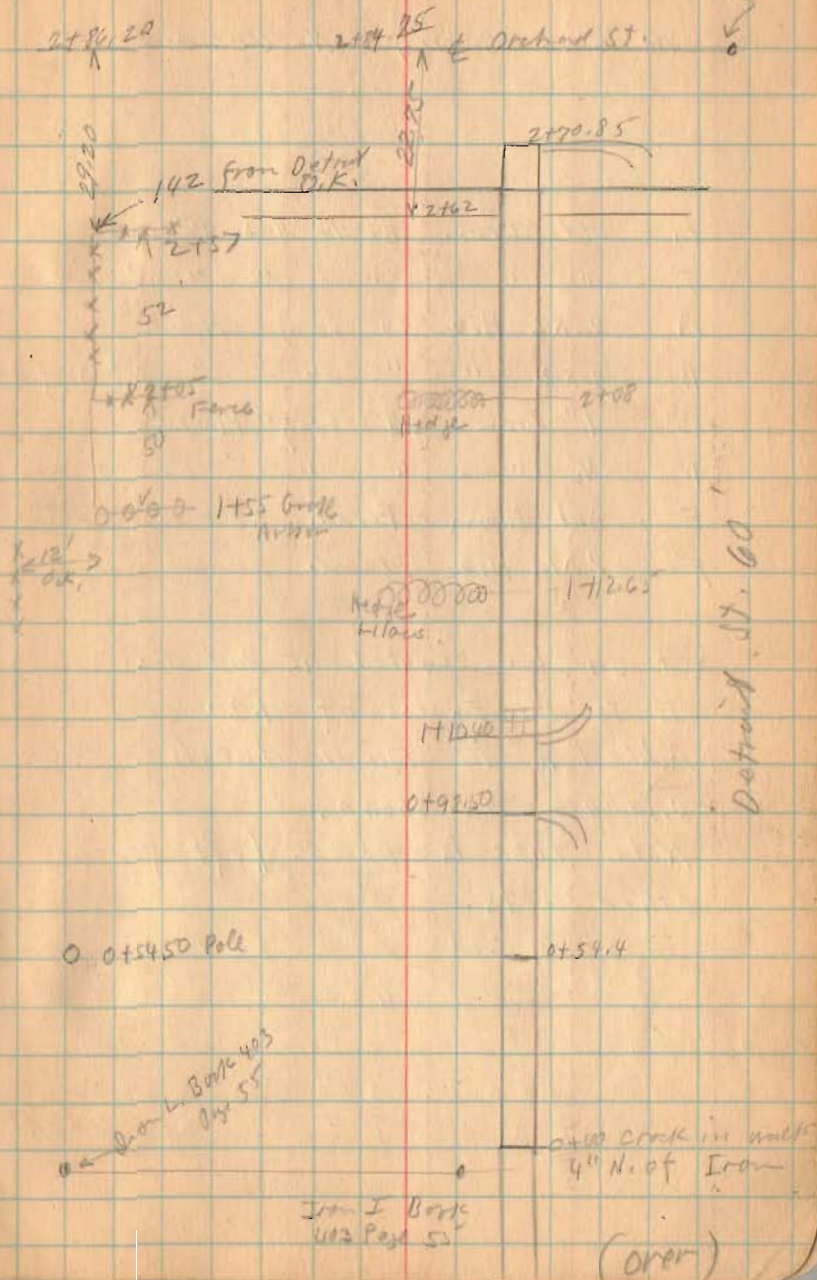 2+86.20
2+84.25
℄ Orchard St.
29.20
22.25
2+70.85
142 from Detroit
O.K.
2+62
2+57
52
2+05
Fence
50
Hedge
2+08
1+55 Grape
Arbor
12'
O.K.
Hedge
Lilacs
1+12.65
Detroit St. 60'
1+10.40
0+92.50
0+54.50 Pole
0+54.4
Iron L. Book 403
Page 55
0+00 Crack in walk
4" N. of Iron
Iron I Book
403 Page 55
(over)